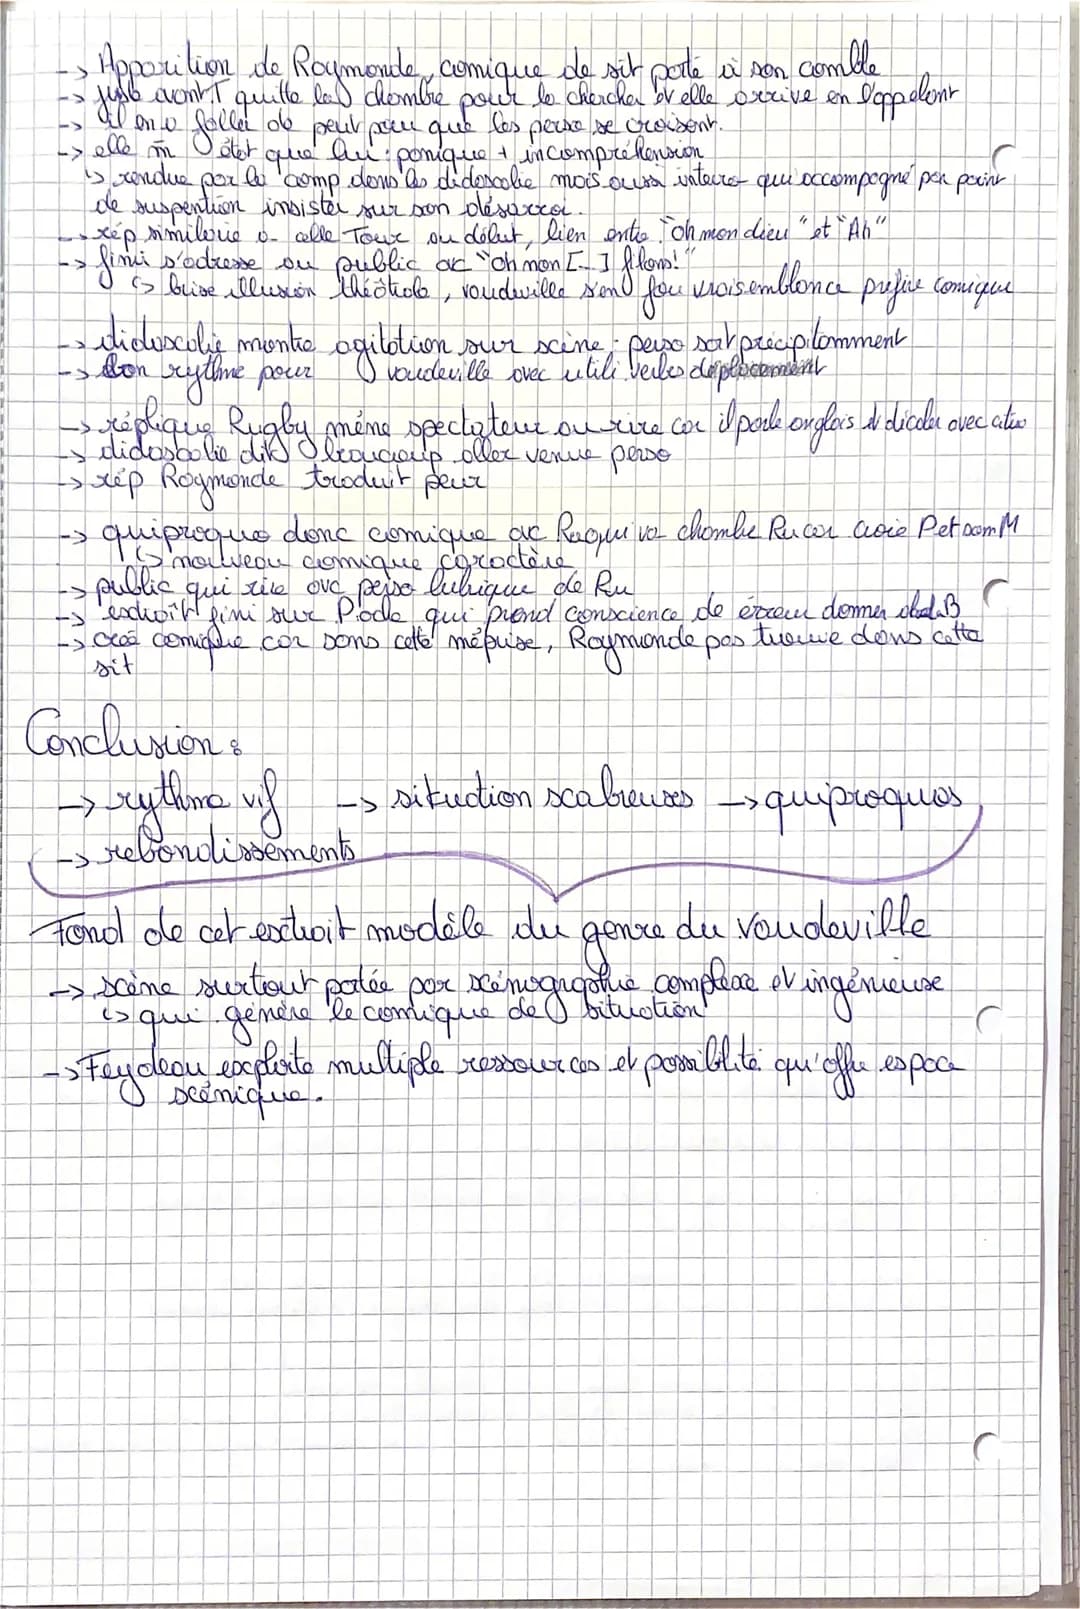 -> Apparition de Raymonde, comique de sit porté à son comble
-> juste avant T quitte la chambre pour la chercher et elle arrive en l'appelant
-> il en a fallu de peut pour que les perso se croisent.
-> elle m̄ état que lui : panique + incompréhension
↳ rendue par la comp dans les didascalie mais aussi inter qui accompagné par point
de suspention insister sur son désarroi.
-> rép similaire à celle Tour au début, lien entre "oh mon dieu" et "Ah"
-> fini s'adresse au public ac "oh non [...] filons!"
↳ brise illusion théâtrale, vaudeville s'en fou vraisemblance préfère comique
-> didascalie montre agitation sur scène : perso sort précipitamment
-> bon rythme pour vaudeville avec utili verbes déplacement
-> réplique Rugby mène spectateur au rire car il parle anglais et décaler avec
-> didascalie dit beaucoup aller venue perso
-> rép Raymonde traduit peur
-> quiproquo donc comique ac Ra qui va chambe Ru car croie Pet dam M
↳ nouveau comique caractère
-> public qui rire avc perso lubrique de Ru
-> extrait fini sur P. ode qui prend conscience de érreur donner B
-> créé comique car dans cette méprise, Raymonde pas trouve dans cette
sit
Conclusion :
-> rythme vif -> situation scabreuses -> quiproquos
-> rebondissements
Fond de cet extrait modèle du genre du vaudeville
-> scène surtout portée par scénographie complexe et ingénieuse
↳ qui génère le comique de situation
-> Feydeau exploite multiple ressources et possibilité qu'offre espace
scénique.